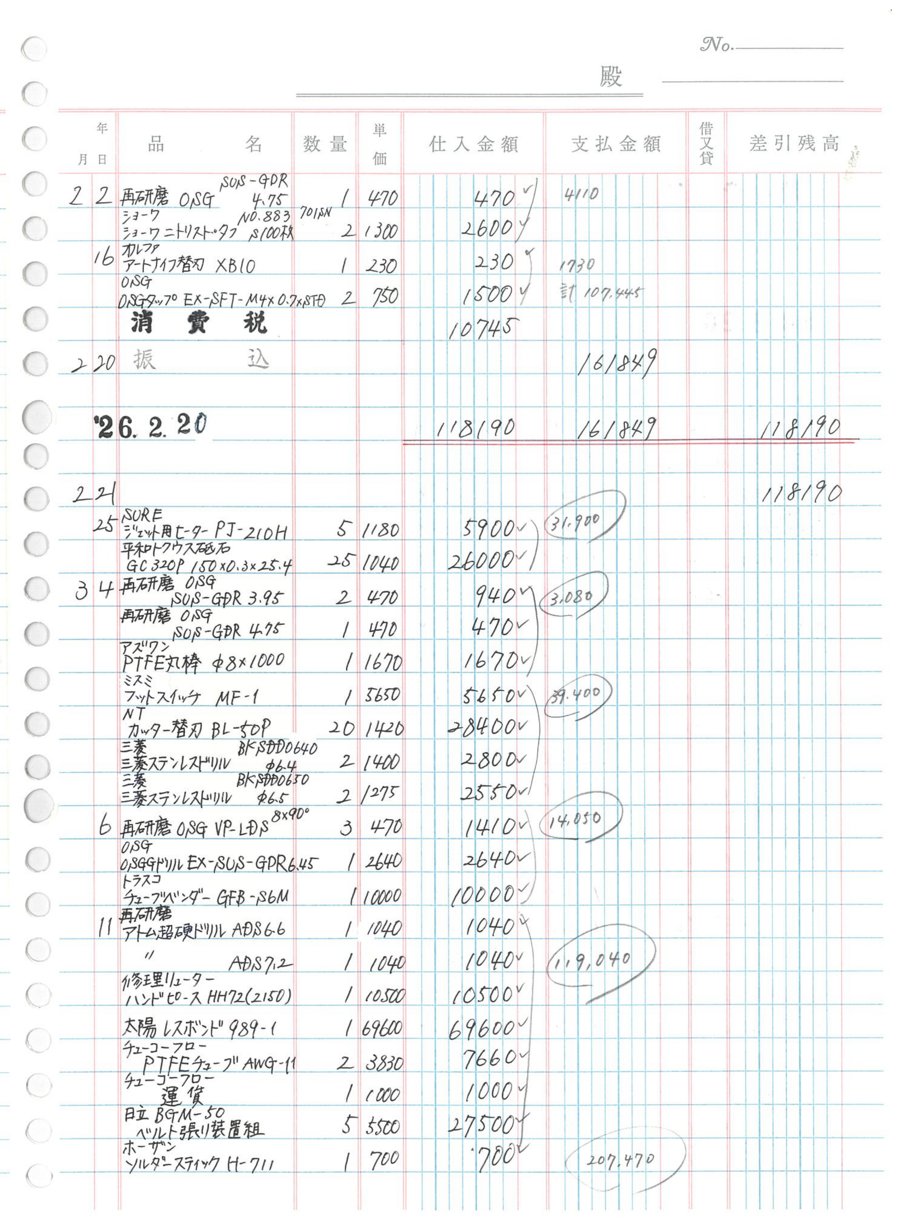 No.
殿
年
月 日 品 名 数量 単価 仕入金額 支払金額 借又貸 差引残高
SUS-GDR
2 2 再研磨 OSG 4.75 1 470 470 4110
ショーワ NO.883 701SN
ショーワ ニトリスト・タフ S100枚 2 1300 2600
カルファ
16 アートナイフ替刃 XB10 1 230 230 1730
OSG
OSGタップ EX-SFT-M4×0.7×STD 2 750 1500 計 107.445
消費税 10745
2 20 振込 161849
'26.2.20 118190 161849 118190
2 21 118190
SURE
25 ジェット用ヒーター PJ-210H 5 1180 5900 31.900
平和トクウス砥石
GC320P 150×0.3×25.4 25 1040 26000
3 4 再研磨 OSG
SUS-GDR 3.95 2 470 940 3.080
再研磨 OSG
SUS-GDR 4.75 1 470 470
アズワン
PTFE丸棒 φ8×1000 1 1670 1670
ミスミ
フットスイッチ MF-1 1 5650 5650 39.400
NT
カッター替刃 BL-50P 20 1420 28400
三菱 BKSDD0640
三菱ステンレスドリル φ6.4 2 1400 2800
三菱 BKSDD0650
三菱ステンレスドリル φ6.5 2 1275 2550
6 再研磨 OSG VP-LDS 8×90° 3 470 1410 14.050
OSG
OSGGドリル EX-SUS-GDR6.45 1 2640 2640
トラスコ
チューブベンダー GFB-S6M 1 10000 10000
再研磨
11 アトム超硬ドリル ADS6.6 1 1040 1040
〃 ADS7.2 1 1040 1040 119,040
修理リューター
ハンドピース HH72(2150) 1 10500 10500
太陽 レスボンド 989-1 1 69600 69600
チューコーフロー
PTFEチューブ AWG-11 2 3830 7660
チューコーフロー
運賃 1 1000 1000
日立 BGM-50
ベルト張り装置組 5 5500 27500
ホーザン
ソルダースティック H-711 1 700 700 207.470